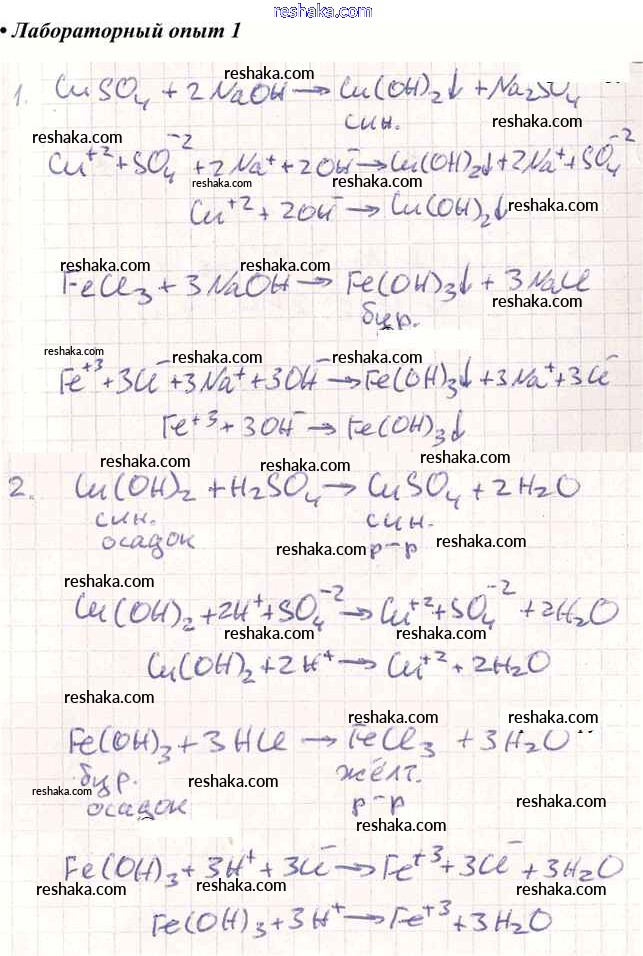 reshaka.com
• Лабораторный опыт 1
reshaka.com
1. CuSO4 + 2NaOH → Cu(OH)2↓ + Na2SO4
син.
reshaka.com reshaka.com
Cu+2 + SO4-2 + 2Na+ + 2OH- → Cu(OH)2↓ + 2Na+ + SO4-2
reshaka.com reshaka.com
Cu+2 + 2OH- → Cu(OH)2↓ reshaka.com
reshaka.com reshaka.com
FeCl3 + 3NaOH → Fe(OH)3↓ + 3NaCl
бур. reshaka.com
reshaka.com reshaka.com
Fe+3 + 3Cl- + 3Na+ + 3OH- → Fe(OH)3↓ + 3Na+ + 3Cl-
reshaka.com
Fe+3 + 3OH- → Fe(OH)3↓
reshaka.com reshaka.com reshaka.com
2. Cu(OH)2 + H2SO4 → CuSO4 + 2H2O
син. син.
осадок р-р
reshaka.com reshaka.com reshaka.com
reshaka.com reshaka.com
Cu(OH)2 + 2H+ + SO4-2 → Cu+2 + SO4-2 + 2H2O
reshaka.com reshaka.com
Cu(OH)2 + 2H+ → Cu+2 + 2H2O
reshaka.com
reshaka.com reshaka.com
Fe(OH)3 + 3HCl → FeCl3 + 3H2O
бур. жёлт.
reshaka.com reshaka.com
осадок р-р reshaka.com
reshaka.com
reshaka.com reshaka.com
Fe(OH)3 + 3H+ + 3Cl- → Fe+3 + 3Cl- + 3H2O
reshaka.com reshaka.com reshaka.com
Fe(OH)3 + 3H+ → Fe+3 + 3H2O